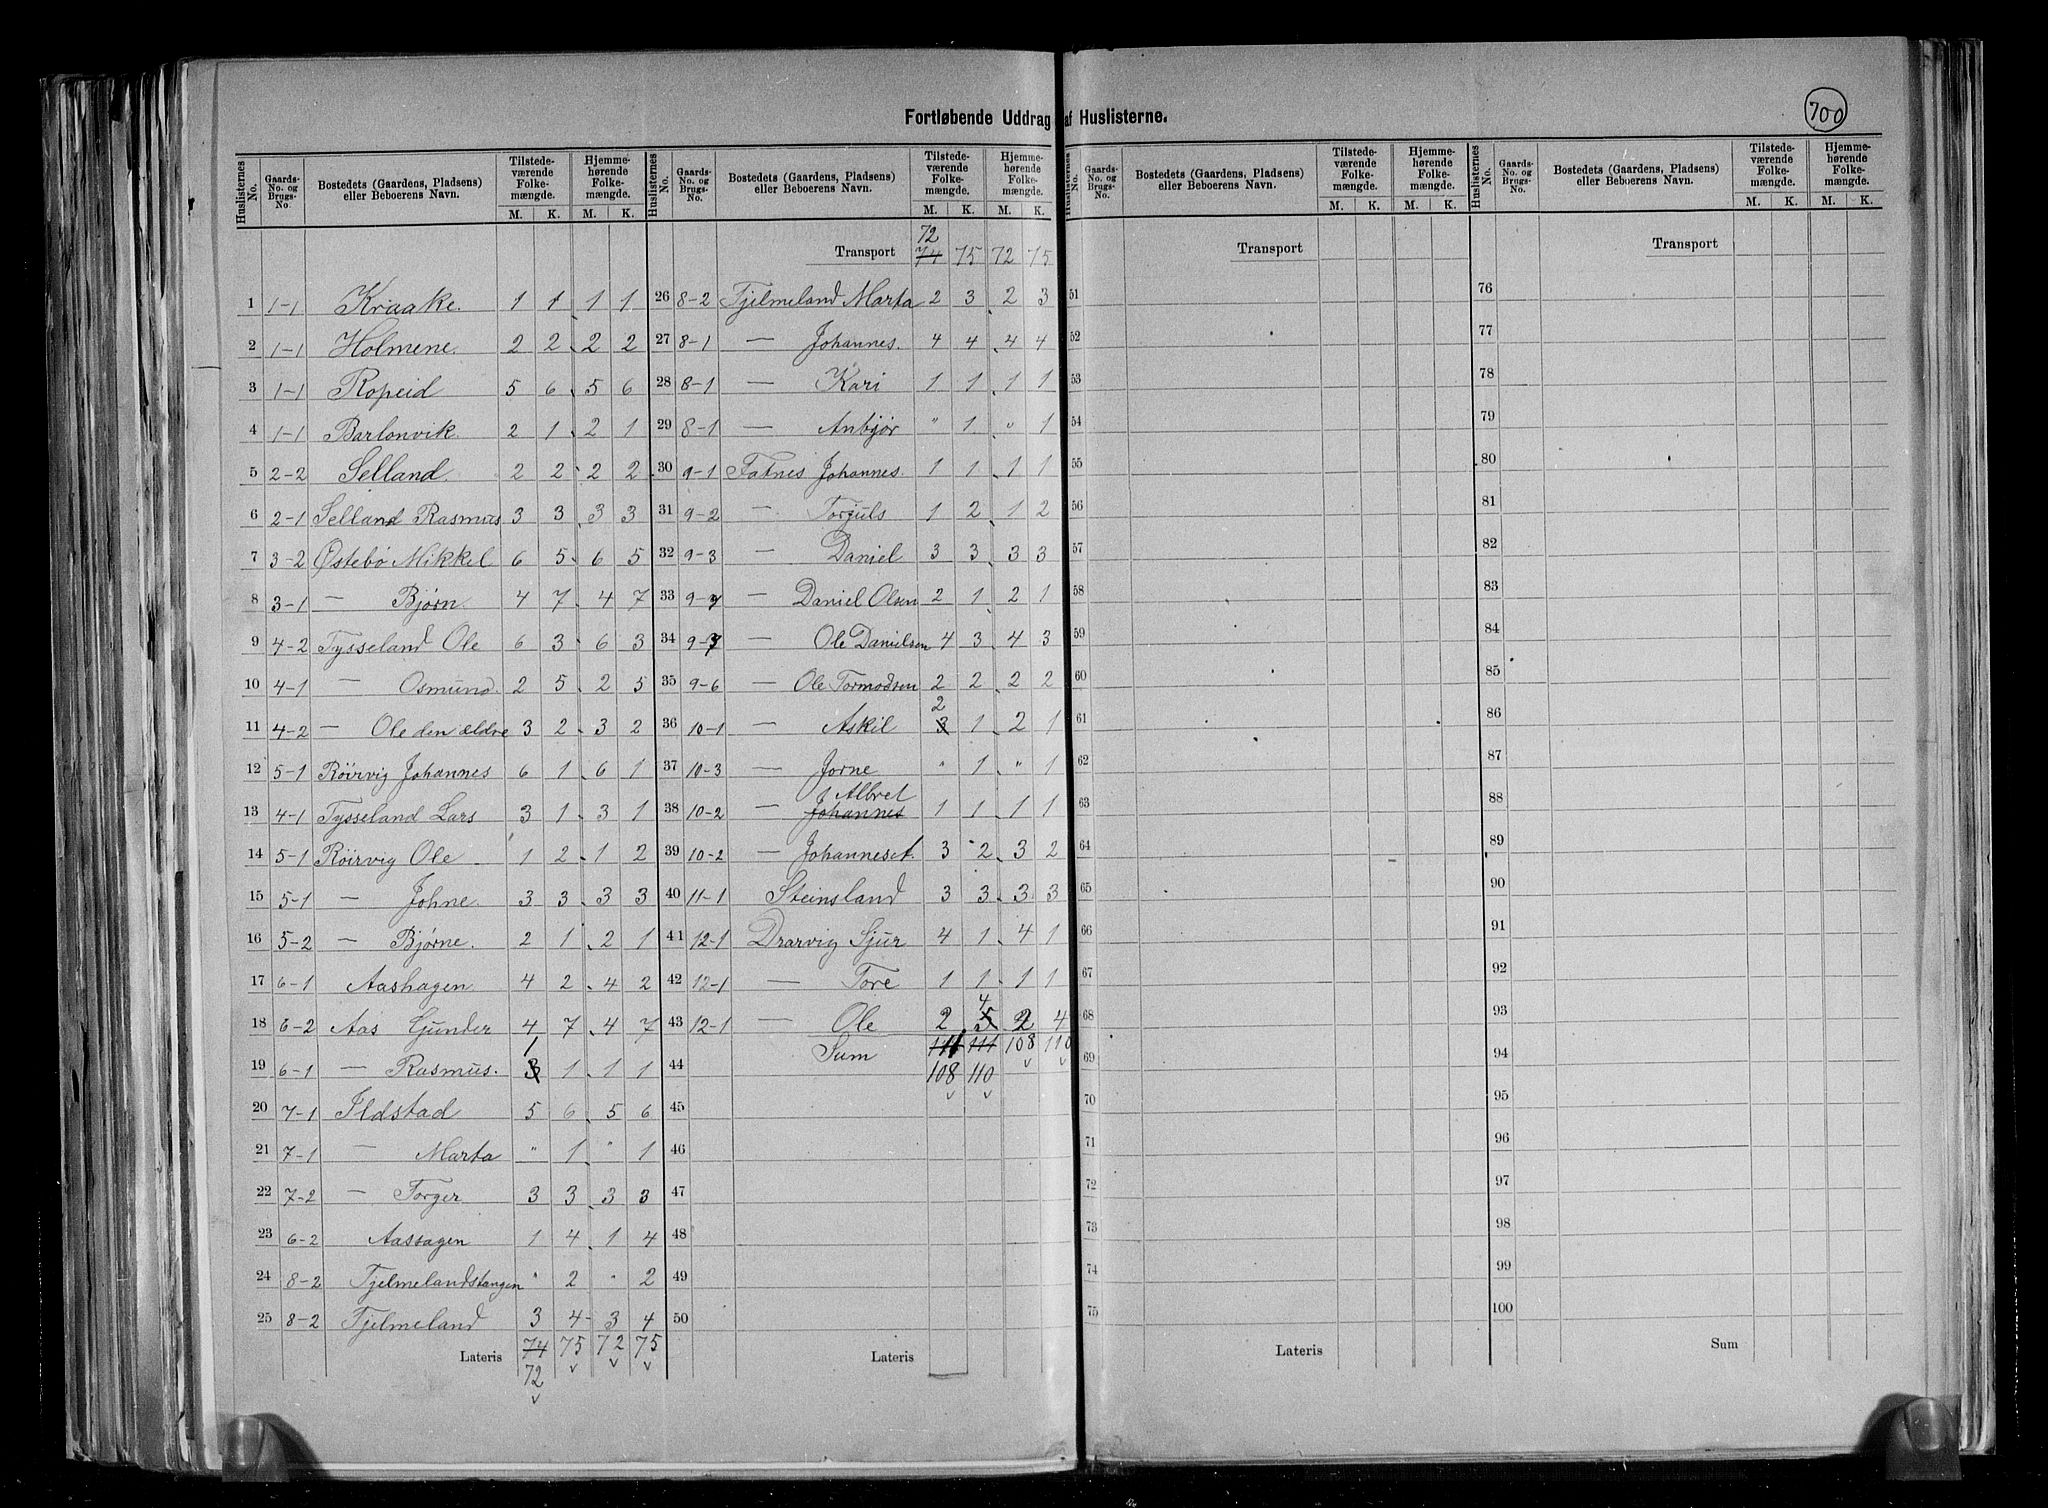 Fortløbende Uddrag af Huslisterne.
700
Huslisternes No. | Gaards-No. og Brugs-No. | Bostedets (Gaardens, Pladsens) eller Beboerens Navn. | Tilstedeværende Folkemængde. M. K. | Hjemmehørende Folkemængde. M. K.
1 1-1 Kraake. 1 1 1 1
2 1-1 Holmene. 2 2 2 2
3 1-1 Ropeid 5 6 5 6
4 1-1 Barlonvik. 2 1 2 1
5 2-2 Selland. 2 2 2 2
6 2-1 Selland Rasmus 3 3 3 3
7 3-2 Østebø Mikkel 6 5 6 5
8 3-1 — Bjørn. 4 7 4 7
9 4-2 Tysseland Ole 6 3 6 3
10 4-1 — Osmund. 2 5 2 5
11 4-2 — Ole den ældre 3 2 3 2
12 5-1 Röirvig Johannes 6 1 6 1
13 4-1 Tysseland Lars 3 1 3 1
14 5-1 Röirvig Ole 1 2 1 2
15 5-1 — Johne. 3 3 3 3
16 5-2 — Bjørne. 2 1 2 1
17 6-1 Aashagen 4 2 4 2
18 6-2 Aas Gunder 4 7 4 7
19 6-1 — Rasmus. 3 1 1 1 1
20 7-1 Ildstad 5 6 5 6
21 7-1 — Marta " 1 " 1
22 7-2 — Torger 3 3 3 3
23 6-2 Aassagen 1 4 1 4
24 8-2 Tjelmelandstangen " 2 " 2
25 8-2 Tjelmeland 3 4 3 4
Lateris 74 75 72 75
72
Huslisternes No. | Gaards-No. og Brugs-No. | Bostedets (Gaardens, Pladsens) eller Beboerens Navn. | Tilstedeværende Folkemængde. M. K. | Hjemmehørende Folkemængde. M. K.
72
Transport 74 75 72 75
26 8-2 Tjelmeland Marta 2 3 2 3
27 8-1 — Johannes. 4 4 4 4
28 8-1 — Kari 1 1 1 1
29 8-1 — Anbjør " 1 " 1
30 9-1 Fatnes Johannes. 1 1 1 1
31 9-2 — Torjuls 1 2 1 2
32 9-3 — Daniel 3 3 3 3
33 9- — Daniel Olsen 2 1 2 1
34 9- — Ole Danielsen 4 3 4 3
35 9-6 — Ole Tormodsen 2 2 2 2
36 10-1 — Askil 3 2 1 2 1
37 10-3 — Jorne " 1 " 1
Albret
38 10-2 — Johannes 1 1 1 1
39 10-2 — Johannes 3 2 3 2
40 11-1 Steinsland 3 3 3 3
41 12-1 Drarvig Sjur 4 1 4 1
42 12-1 — Tore 1 1 1 1
43 12-1 — Ole 2 5 4 2 4
44 Sum 111 111 108 110
108 110
45
46
47
48
49
50
Lateris
Huslisternes No. | Gaards-No. og Brugs-No. | Bostedets (Gaardens, Pladsens) eller Beboerens Navn. | Tilstedeværende Folkemængde. M. K. | Hjemmehørende Folkemængde. M. K.
Transport
51
52
53
54
55
56
57
58
59
60
61
62
63
64
65
66
67
68
69
70
71
72
73
74
75
Lateris
Huslisternes No. | Gaards-No. og Brugs-No. | Bostedets (Gaardens, Pladsens) eller Beboerens Navn. | Tilstedeværende Folkemængde. M. K. | Hjemmehørende Folkemængde. M. K.
Transport
76
77
78
79
80
81
82
83
84
85
86
87
88
89
90
91
92
93
94
95
96
97
98
99
100
Sum